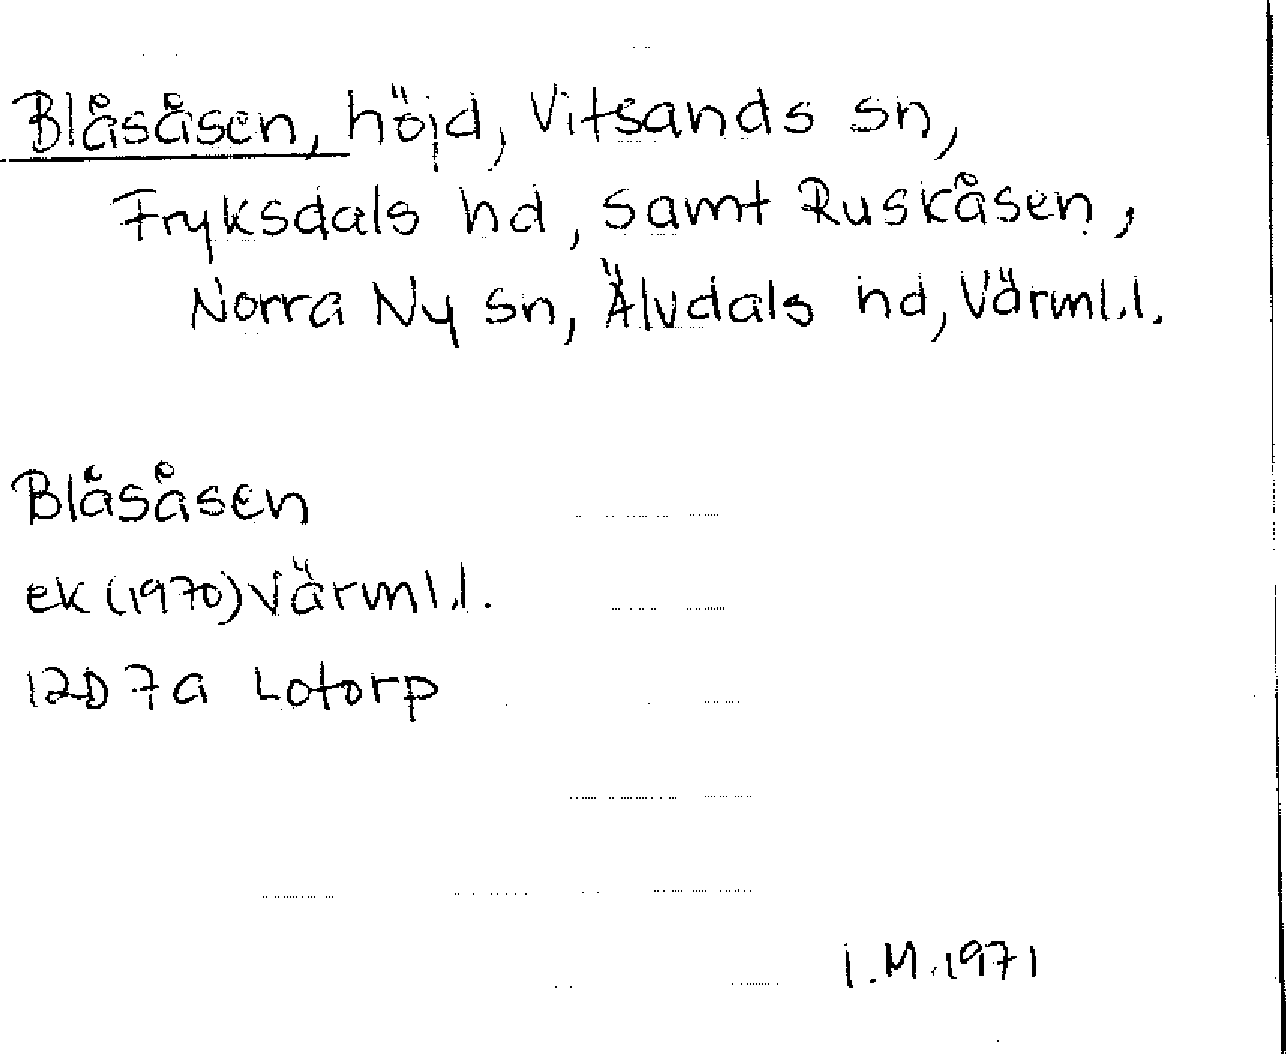 Blåsåsen, höjd, Vitsands sn,
Fryksdals hd, samt Ruskåsen,
Norra Ny sn, Älvdals hd, Värml.l.
Blåsåsen
ek (1970) Värml.l.
12D 7a Lotorp
I.M. 1971